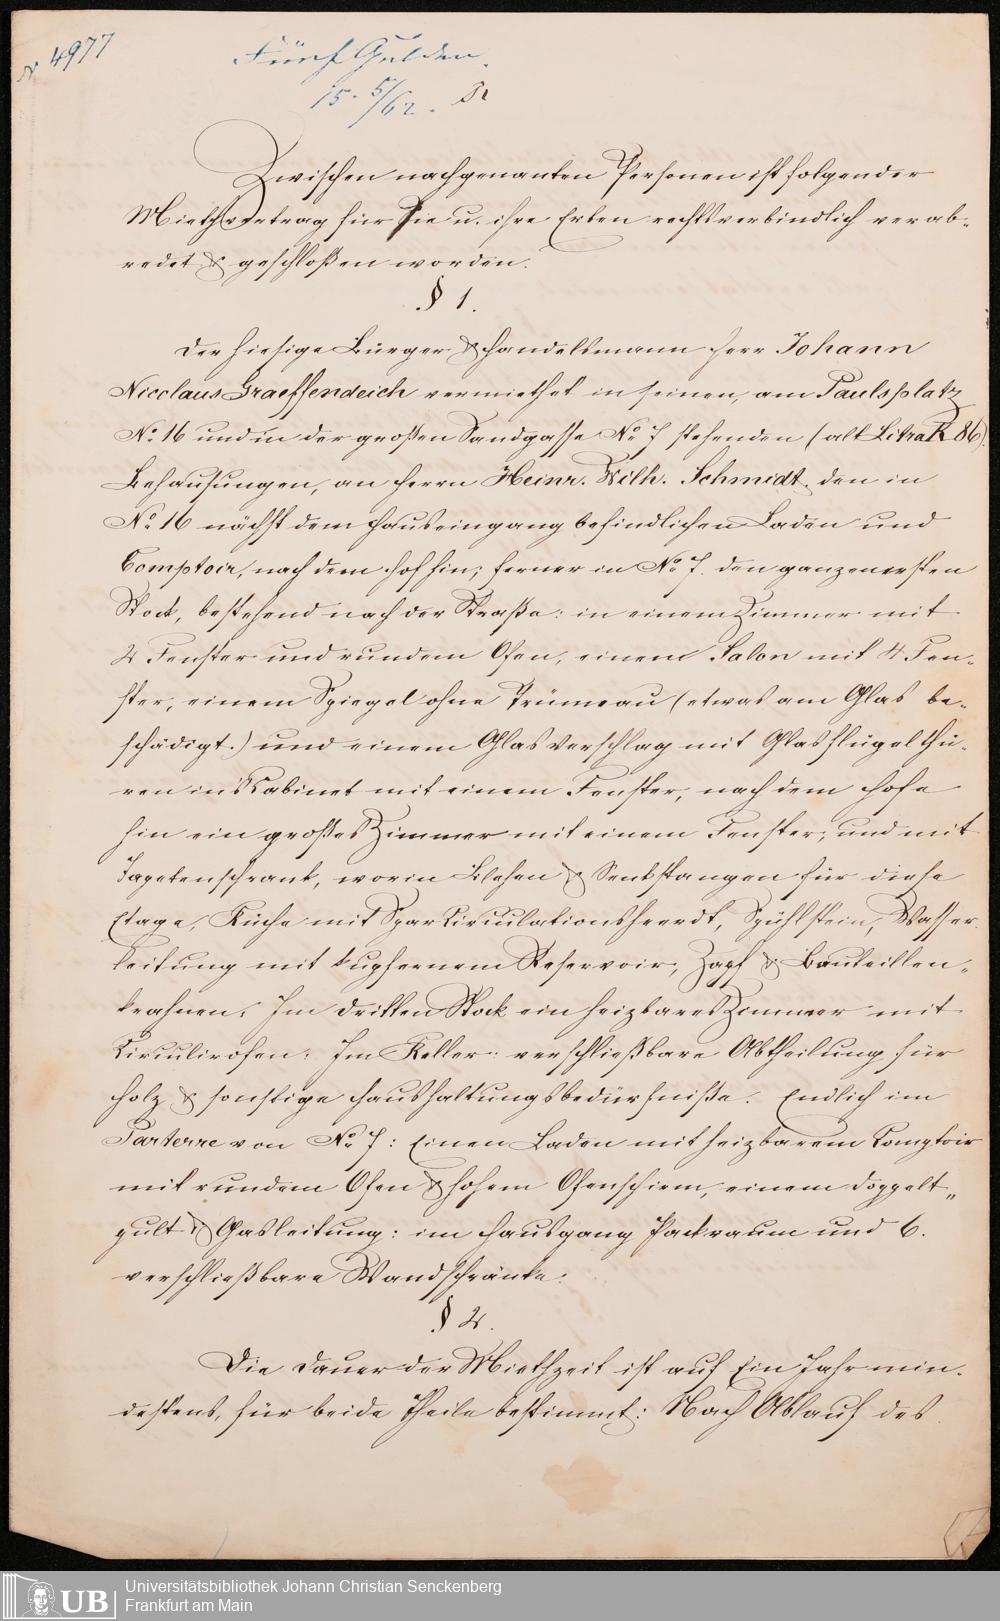 N 4977
Fünf Gulden.
15. 5/62.
Zwischen nachgenanten Personen ist folgender
Miethvertrag für Sie u. ihre Erben rechtsverbindlich verab-
redet & geschloßen worden.
§ 1.
Der hiesige Bürger & Handelsmann Herr Johann
Nicolaus Graeffendeich vermiethet in seinen, am Paulsplatz
No. 16 und in der großen Sandgasse No. 7 stehenden (alt Litra K 86).
Behausungen, an Herrn Heinr. Wilh. Schmidt, den in
No. 16 nächst dem Hauseingang befindlichen Laden und
Comptoir, nach dem Hof hin; ferner in No. 7. den ganzen ersten
Stock, bestehend nach der Straße: in einem Zimmer mit
2 Fenster und rundem Ofen, einem Salon mit 4 Fen-
ster, einem Spiegel ohne Trümeau (etwas am Glas be-
schädigt.) und einem Glasverschlag mit Glasflügelthü-
ren in's Cabinet mit einem Fenster, nach dem Hofe
hin ein großes Zimmer mit einem Fenster, und mit
Tapetenschrank, worin Blehen & Senkstangen für diese
Etage, Küche mit Spar Circulationsheerdt, Spühlstein, Wasser-
leitung mit kupfernem Reservoir, Zapf & Bouteillen-
krahnen. Im dritten Stock ein heizbares Zimmer mit
Circulirofen: Im Keller: verschließbare Abtheilung für
Holz & sonstige Haushaltungsbedürfniße. Endlich im
Parterre von No. 7: Einen Laden mit heizbarem Comptoir
mit rundem Ofen & hohem Ofenschirm, einem Doppelt-
pult & Gasleitung: im Hausgang Packraum und 6.
verschließbare Wandschränke.
§ 2.
Die Dauer der Miethzeit ist auf Ein Jahr min-
destens, für beide Theile bestimmt: Nach Ablauf des
UB Universitätsbibliothek Johann Christian Senckenberg
Frankfurt am Main